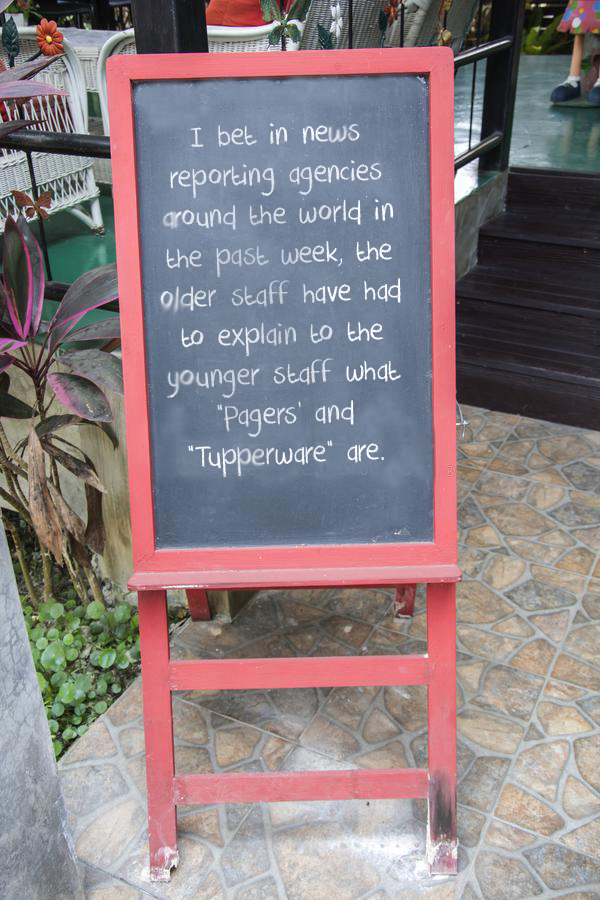 I bet in news
reporting agencies
around the world in
the past week, the
older staff have had
to explain to the
younger staff what
"Pagers' and
"Tupperware" are.